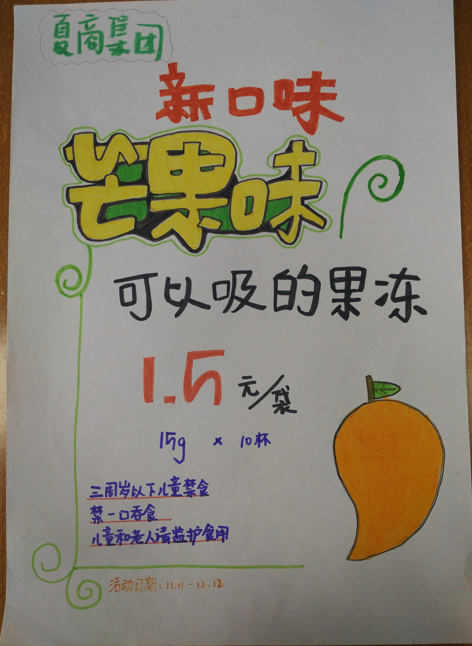 夏商集团
新口味
芒果味
可以吸的果冻
1.5元/袋
15g × 10杯
三周岁以下儿童禁食
禁一口吞食
儿童和老人请监护食用
活动日期：11.11-12.12